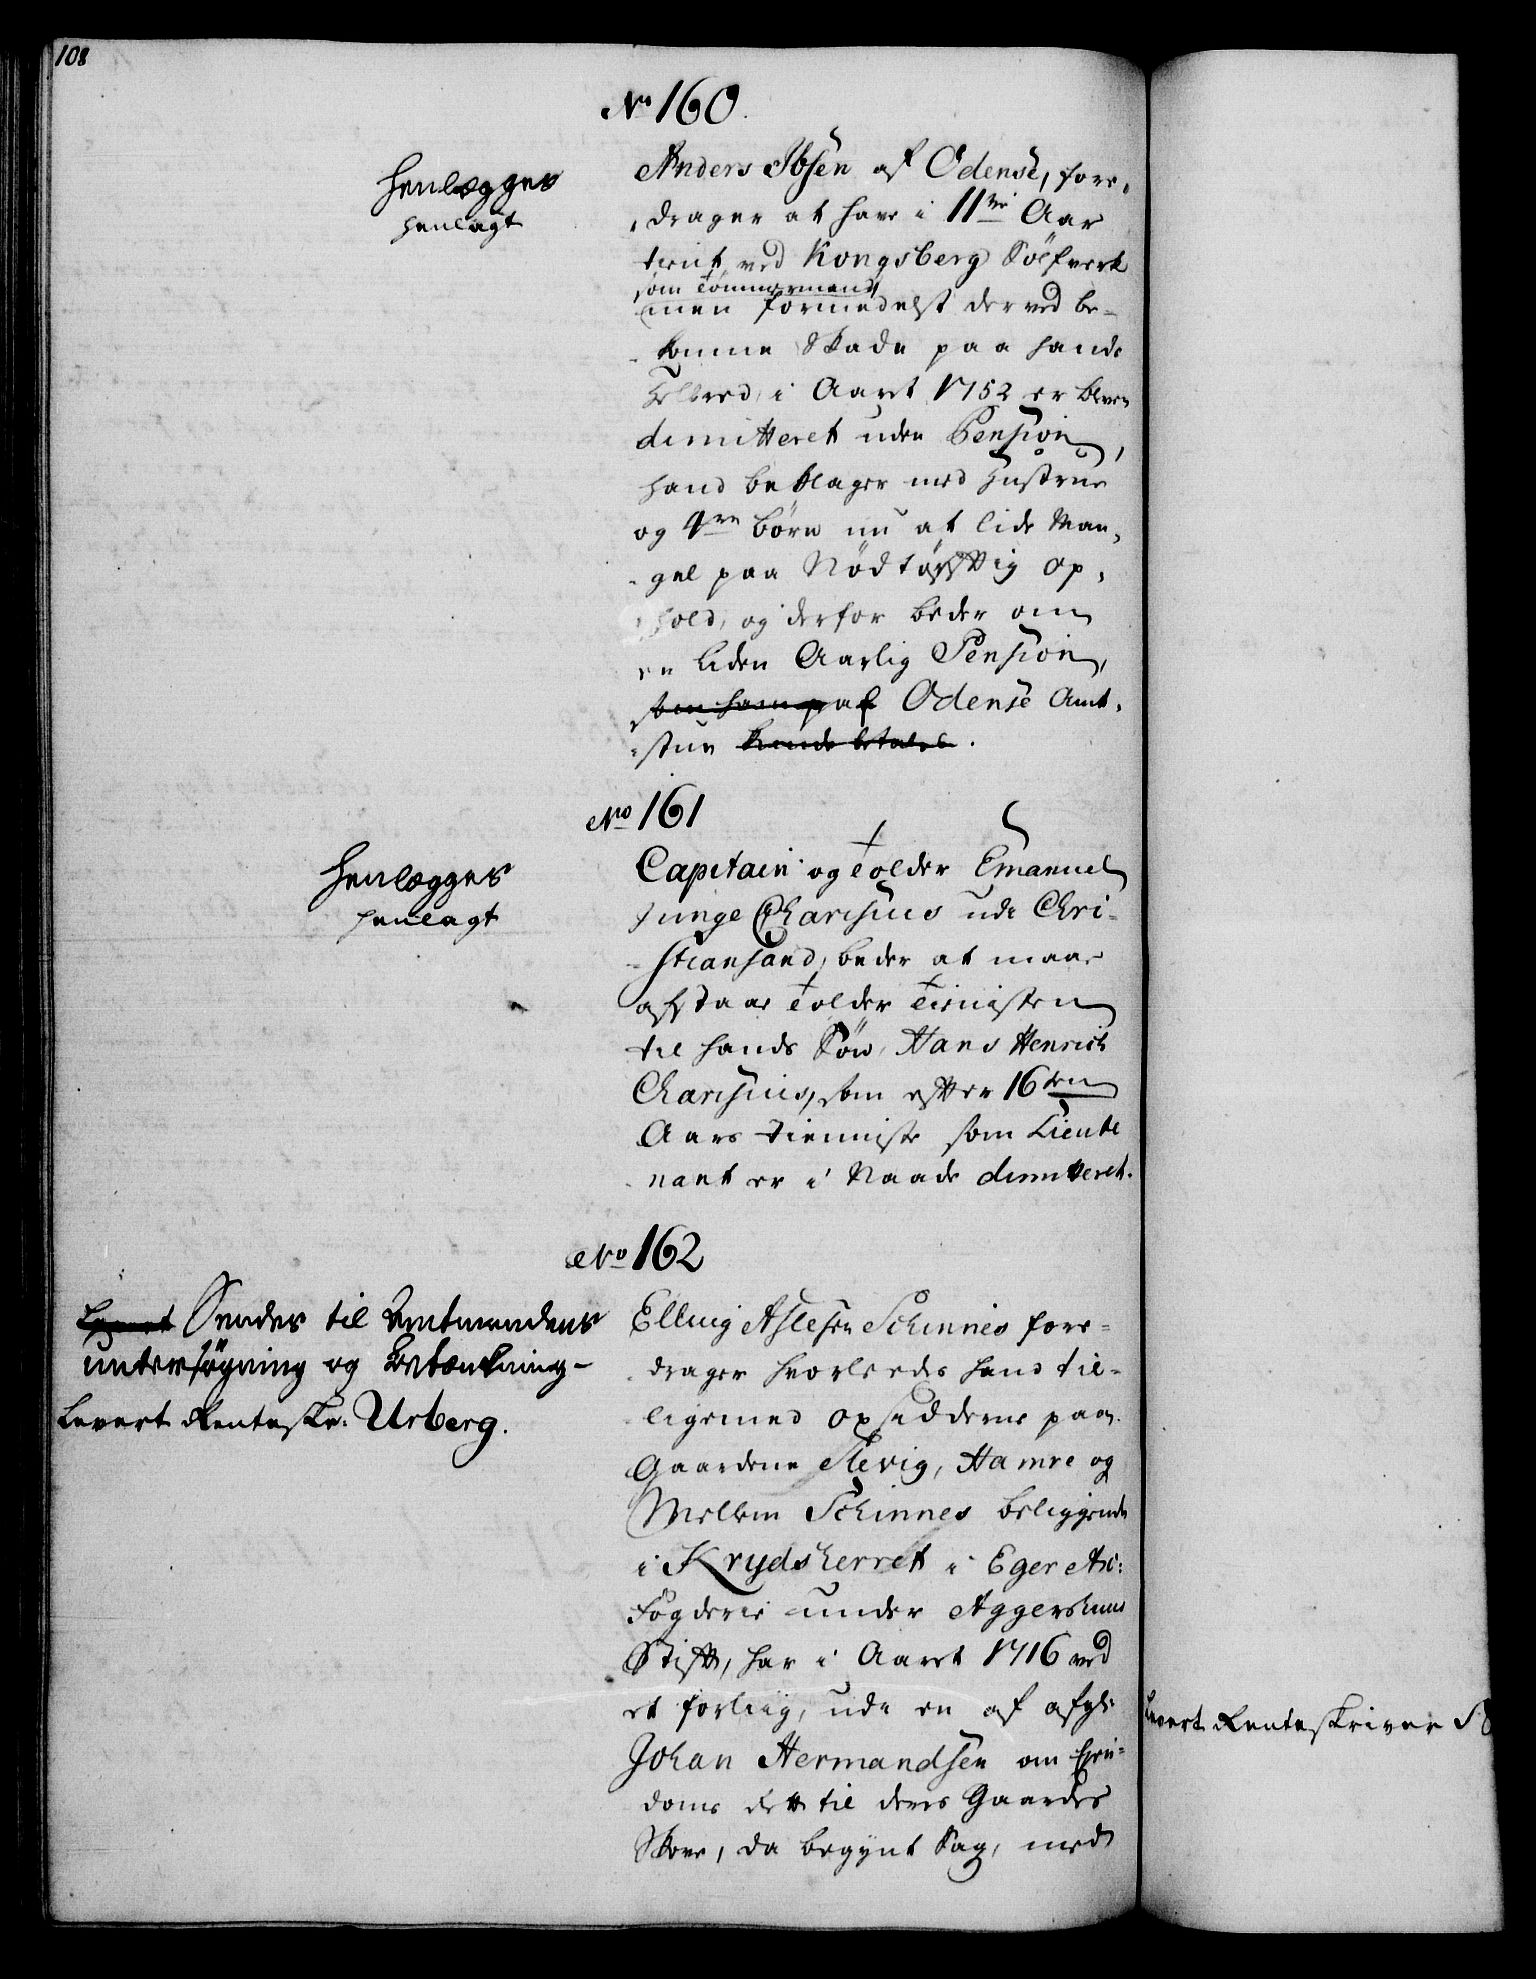 108
No 160.
Henlægges
henlagt
Anders Ibsen af Odense, fore,
,drager at have i 11ve Aar
tient ved Kongsberg Sölfverk
som Tömmermand,
men formedelst derved be-
-komne Skade paa hands
Helbred, i Aaret 1752 er bleven
dimitteret uden Pension,
hand beklager med Hustrue
og 4re börn nu at lide Man,
-gel paa Nödtörfftig op,
,hold, og derfor beder om
en liden Aarlig Pension,
som hand af Odense Amt,
-stue kunde betales.
No 161
Henlægges
henlagt
Capitain og Tolder Emanuel
Junge Charisius udi Chri-
-stiansand, beder at maae
afstaae Tolder Tienisten
til hands Sön, Hans Henrich
Charisius, som efter 16ten
Aars tienniste som Lieute
nant er i Naade dimitteret.
No 162
Sendes til Amtmandens
undersøgning og Betænkning-
Levert Renteskr: Urberg.
Elling Aslesen Schinnes fore-
drager hvorleeds hand til-
ligemed opsidderne paa
Gaardene Slevig, Hamre og
Mellem Schinnes beliggende
i Krydsherret i Eger etc:
Fogderie under Aggershuus
Stift, har i Aaret 1716 ved
et forliig, udi en af afgl:
Johan Hermandsen om Eien-
doms Rett til deres Gaarders
Skove, da begynt Sag, med
Levert Renteskriver S